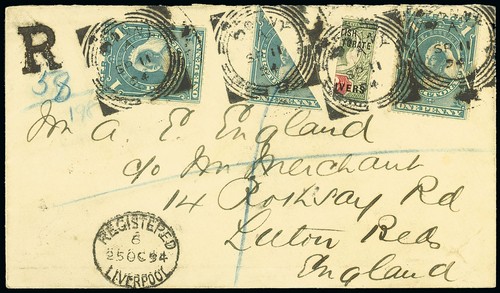 R
58
1 1
ONE PENNY
1
ONE PENNY
Mr A. E. England
c/o Mr Merchant
14 Rothsay Rd
Luton Beds
England
REGISTERED
6
25 OC 94
LIVERPOOL